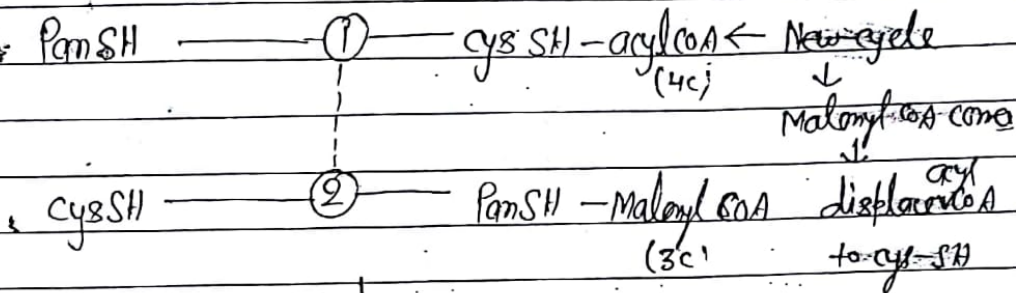 PanSH ① cys SH - acyl CoA ← New cycle
(4c) ↓
Malonyl CoA come
↓
CysSH ② PanSH - Malonyl CoA displace acyl CoA
(3c) to cys-SH